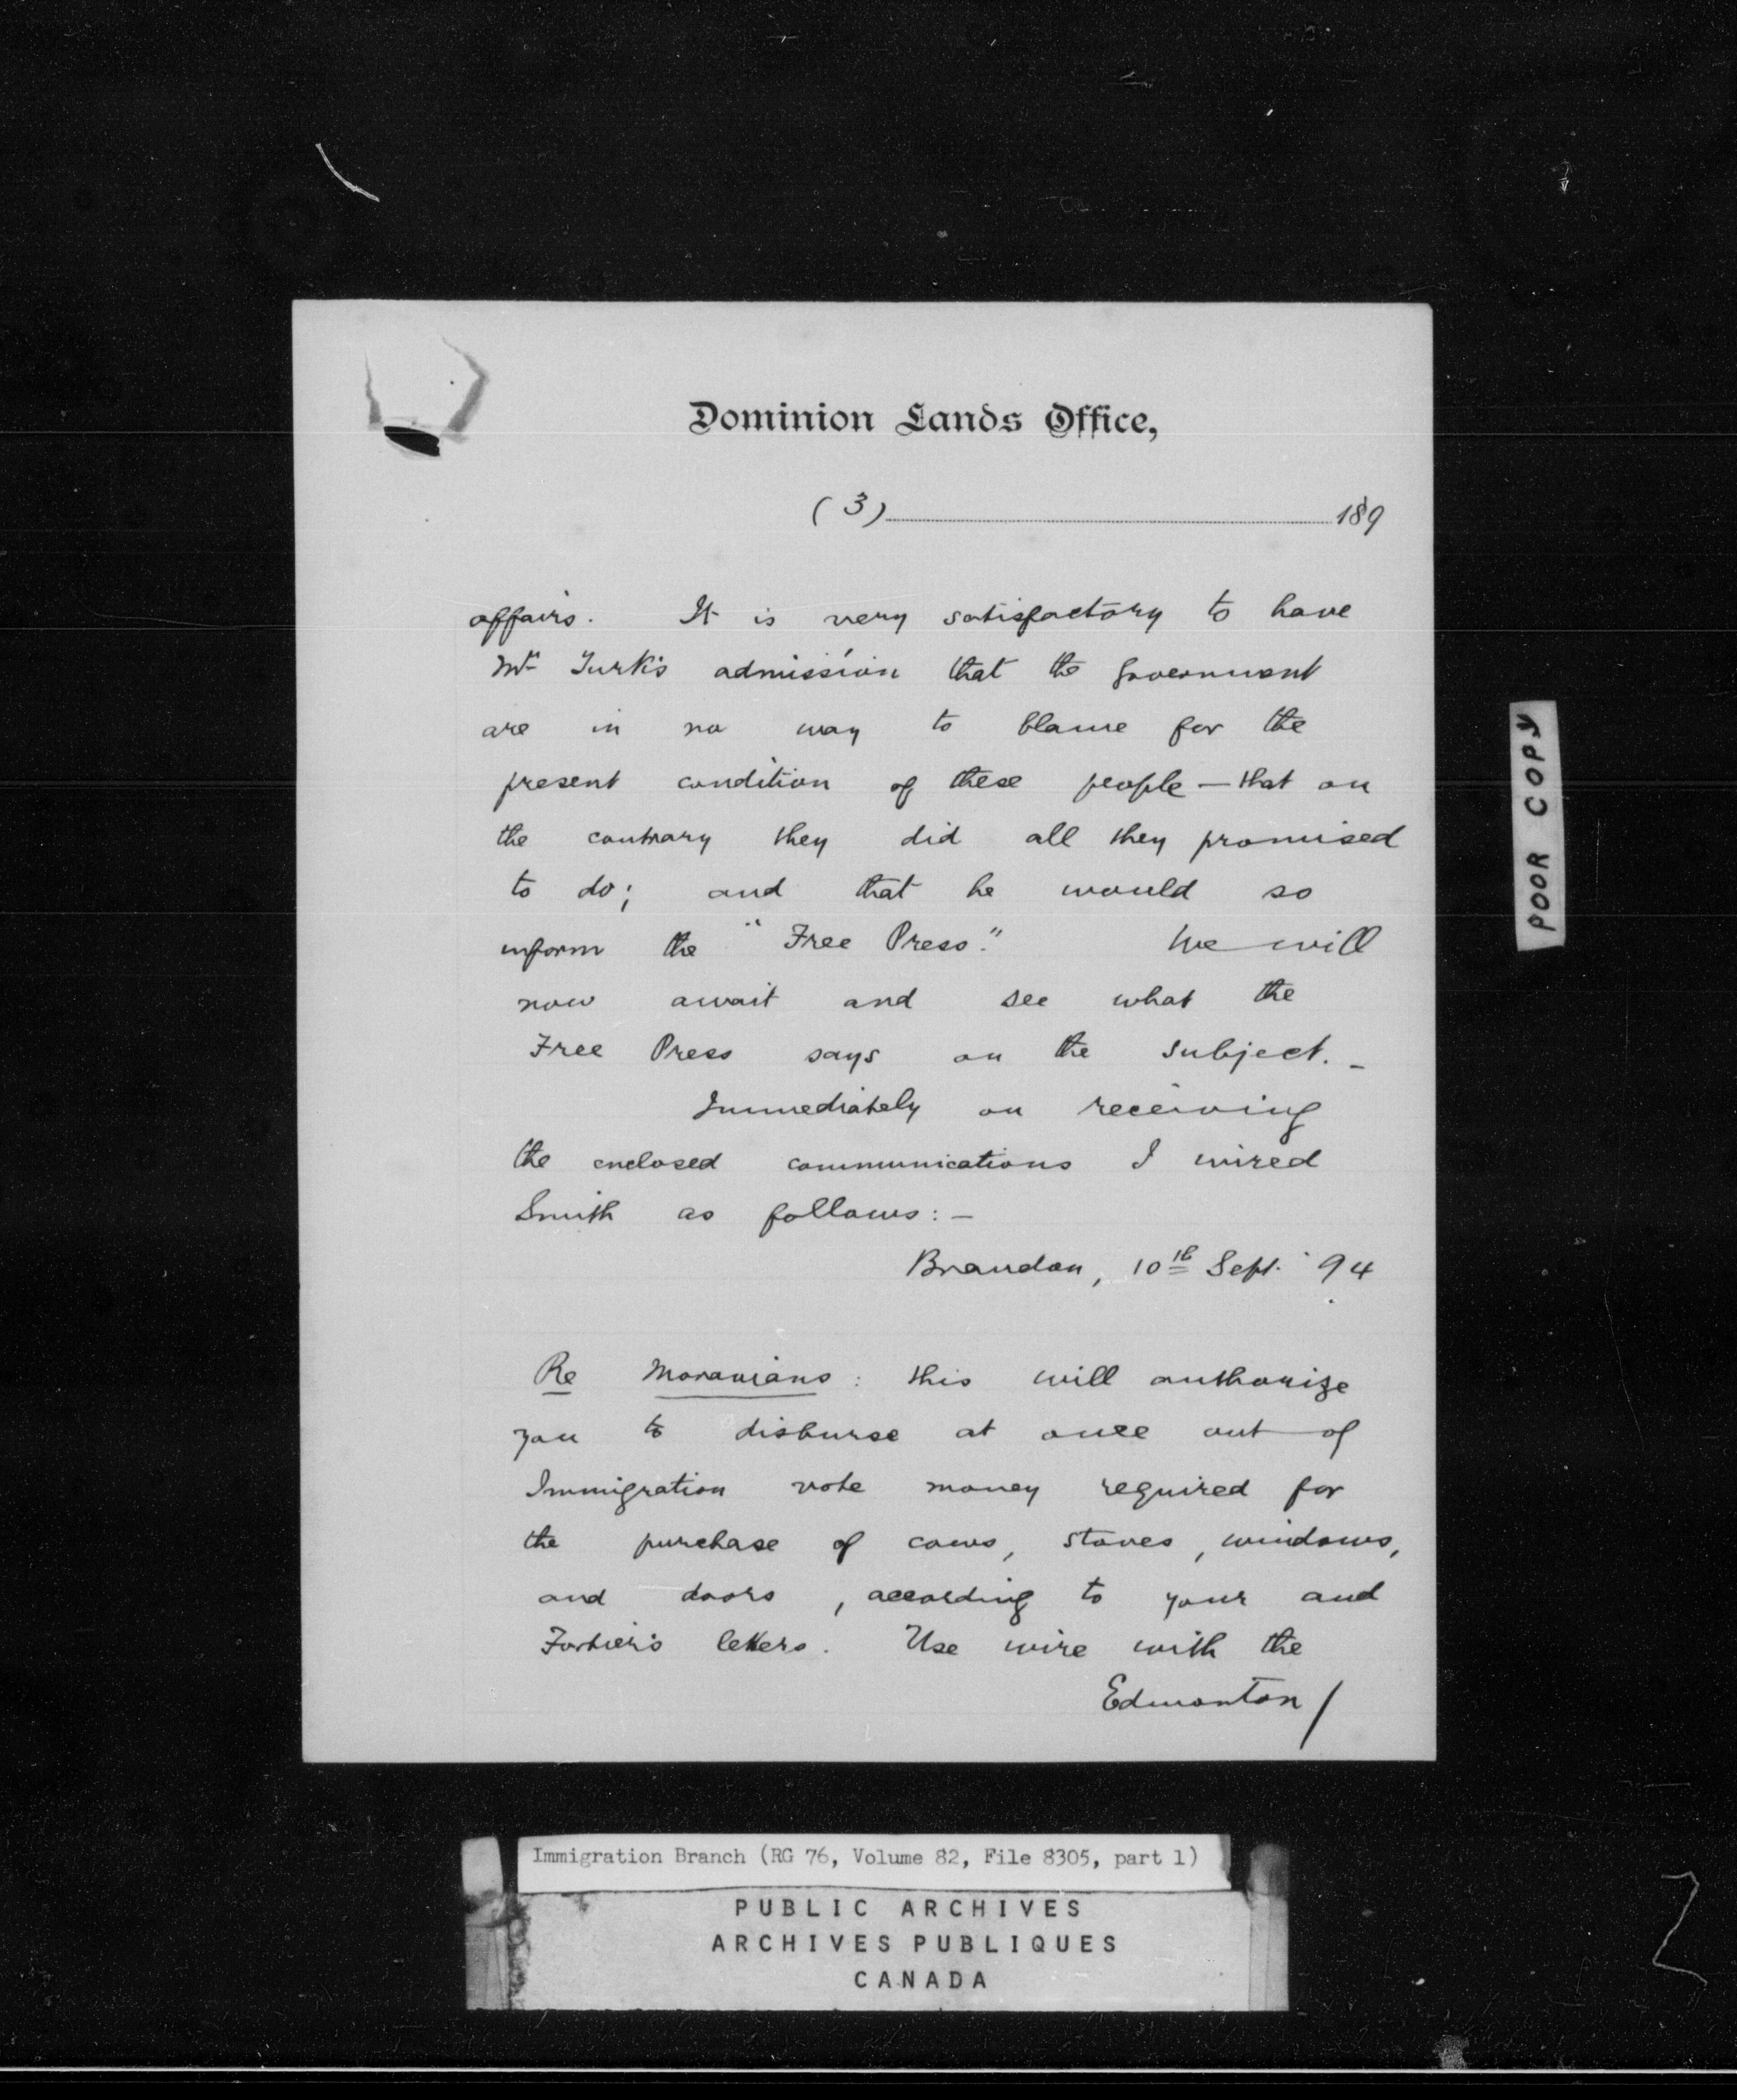 Dominion Lands Office,
(3) 189
affairs. It is very satisfactory to have
Mr Turk's admission that the Government
are in no way to blame for the
present condition of these people — that on
the contrary they did all they promised
to do; and that he would so
inform the "Free Press." We will
now await and see what the
Free Press says on the subject. –
Immediately on receiving
the enclosed communications I wired
Smith as follows: –
Brandon, 10th Sept. '94
Re Moravians: this will authorize
you to disburse at once out of
Immigration vote money required for
the purchase of cows, stoves, windows,
and doors, according to your and
Fortier's letters. Use wire with the
Edmonton /
POOR COPY
Immigration Branch (RG 76, Volume 82, File 8305, part 1)
PUBLIC ARCHIVES
ARCHIVES PUBLIQUES
CANADA